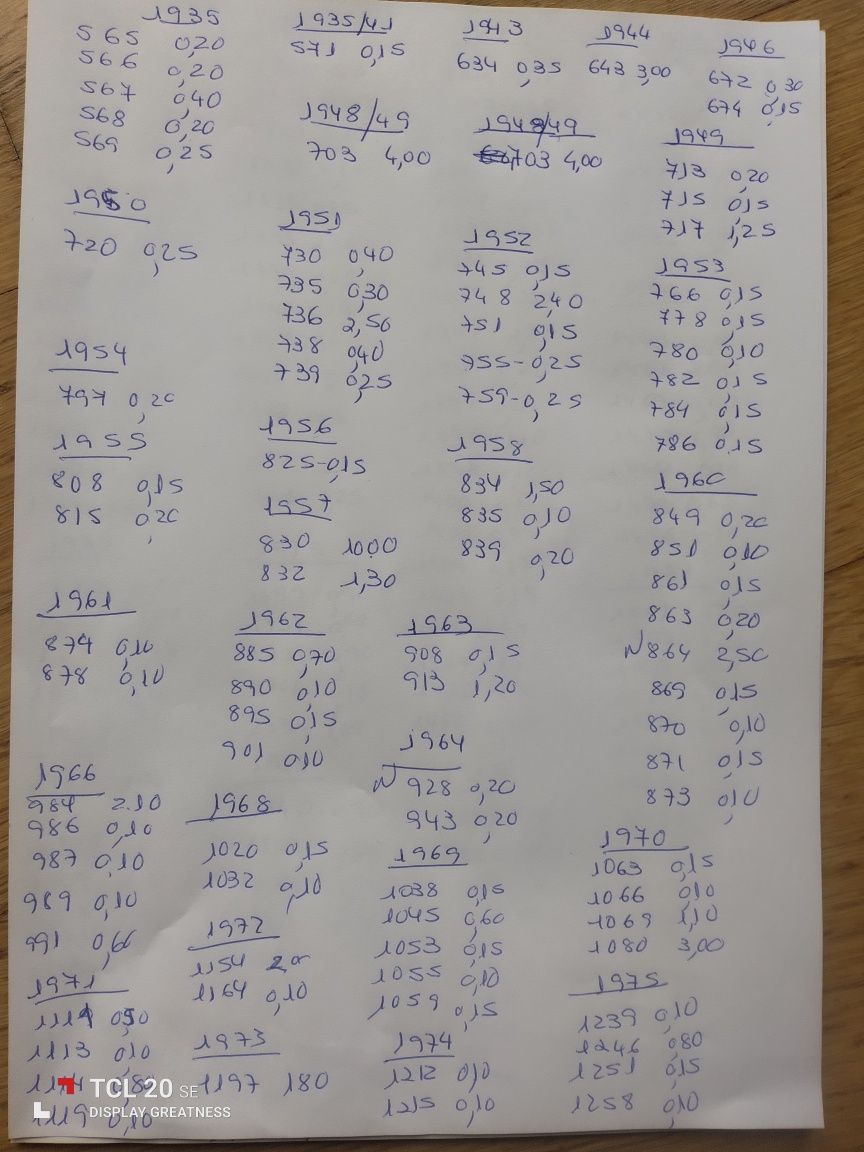 1935
565 0,20
566 0,20
567 0,40
568 0,20
569 0,25
1935/41
571 0,15
1943
634 0,35
1944
643 3,00
1946
672 0,30
674 0,15
1948/49
703 4,00
1948/49
703 4,00
1949
713 0,20
715 0,15
717 1,25
1950
720 0,25
1951
730 0,40
735 0,30
736 2,50
738 0,40
739 0,25
1952
745 0,15
748 2,40
751 0,15
755-0,25
759-0,25
1953
766 0,15
778 0,15
780 0,10
782 0,15
784 0,15
786 0,15
1954
797 0,20
1955
808 0,15
815 0,20
1956
825-0,15
1957
830 1000
832 1,30
1958
834 1,50
835 0,10
839 0,20
1960
849 0,20
851 0,10
861 0,15
863 0,20
N 864 2,50
869 0,15
870 0,10
871 0,15
873 0,10
1961
874 0,10
878 0,10
1962
885 0,70
890 0,10
895 0,15
901 0,10
1963
908 0,15
913 1,20
1964
N 928 0,20
943 0,20
1966
984 2.10
986 0,10
987 0,10
989 0,10
991 0,60
1968
1020 0,15
1032 0,10
1969
1038 0,15
1045 0,60
1053 0,15
1055 0,10
1059 0,15
1970
1063 0,15
1066 0,10
1069 1,10
1080 3,00
1971
1113 0,10
1119 0,10
1972
1154
1164 0,10
1973
1197 180
1974
1212 0,10
1215 0,10
1975
1239 0,10
1246 0,80
1251 0,15
1258 0,10
TCL 20 SE
DISPLAY GREATNESS